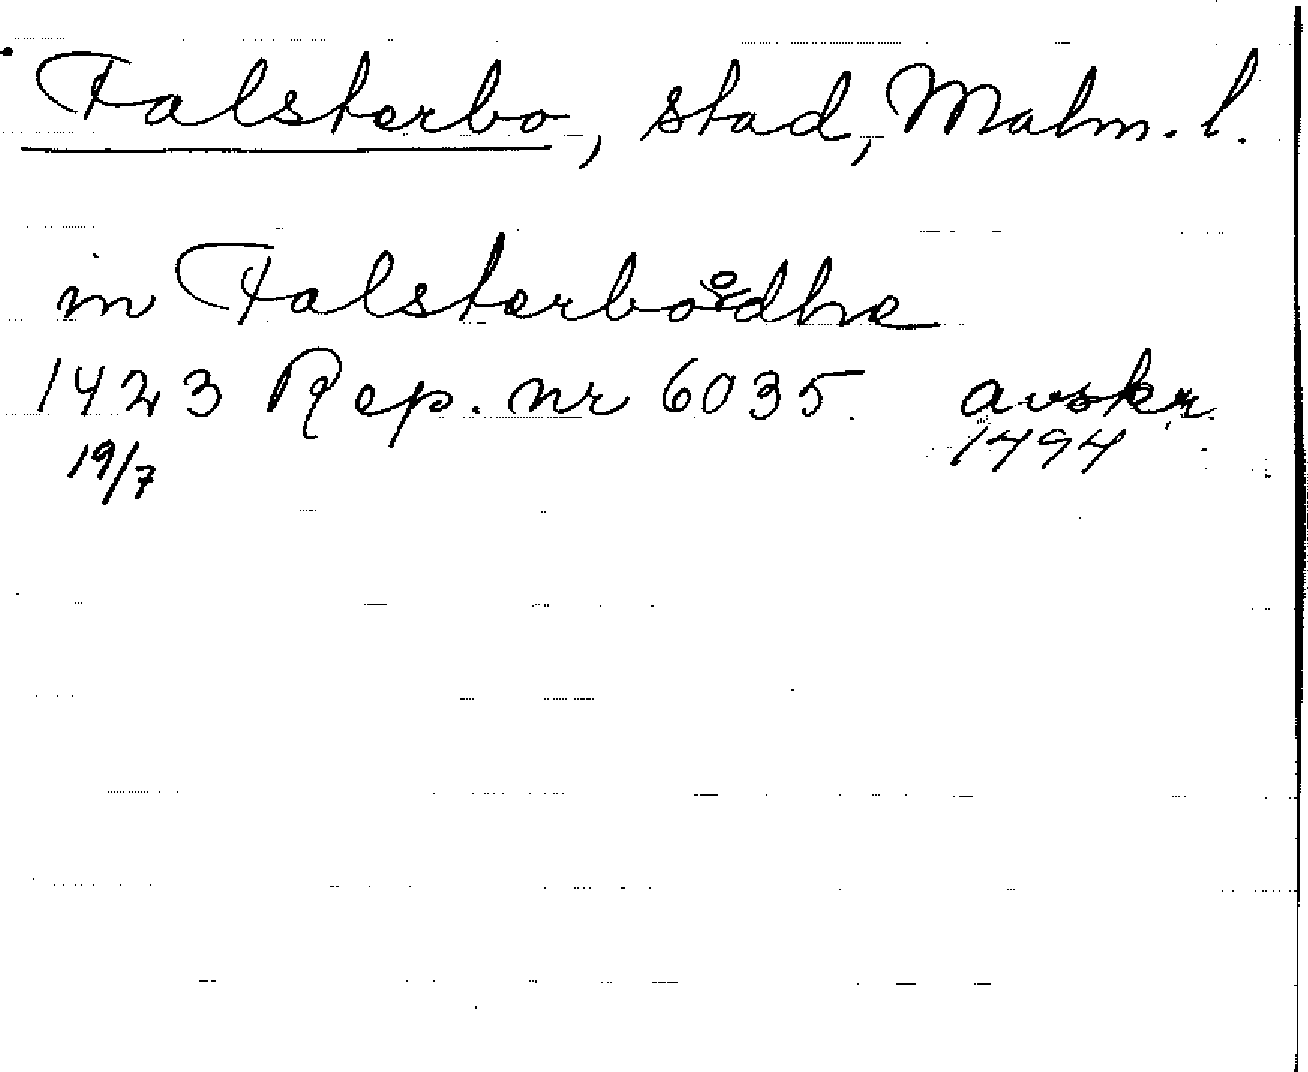 Falsterbo, stad, Malm. l.
in Falsterboodhe
1423 Rep. nr 6035. avskr.
19/7 1494